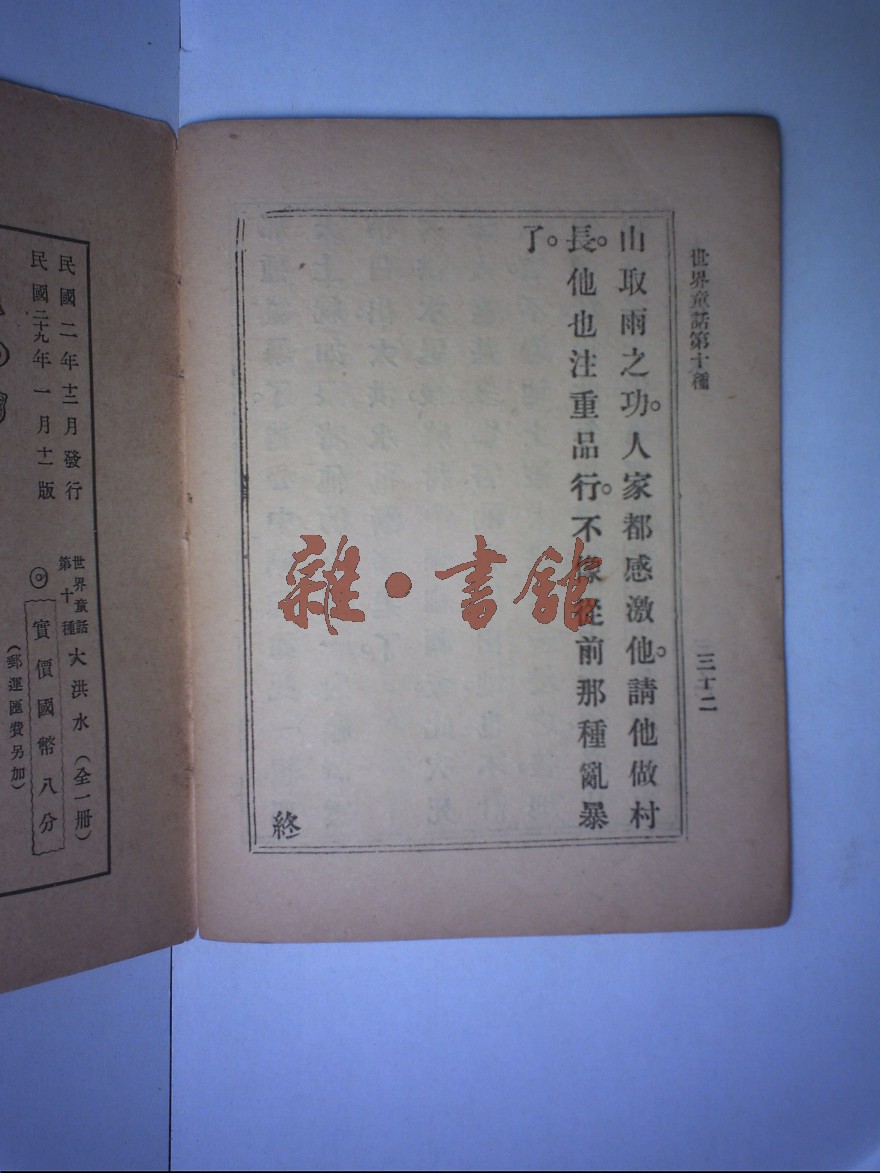 世界童話第十種
三十二
山取雨之功。人家都感激他。請他做村
長。他也注重品行。不像從前那種亂暴
了。
終
雜·書館
民國二年十二月發行
民國二十九年一月十一版
世界童話
第十種
大洪水（全一冊）
實價國幣八分
（郵運匯費另加）